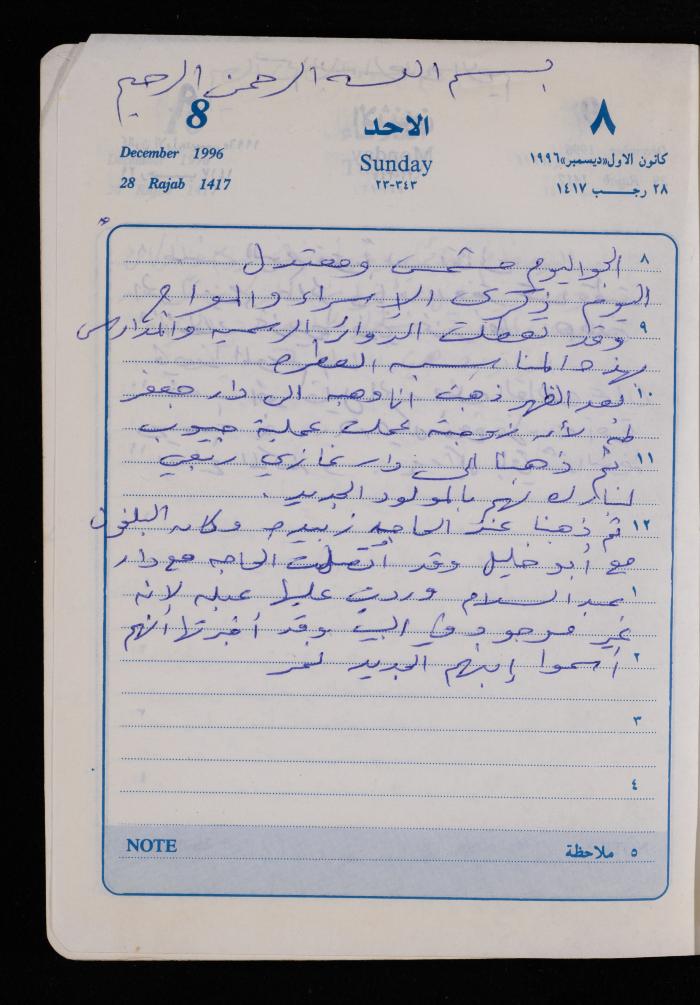 بسم الله الرحمن الرحيم
8 الاحد ٨
December 1996 Sunday كانون الاول «ديسمبر» ١٩٩٦
28 Rajab 1417 ٢٣-٣٤٣ ٢٨ رجب ١٤١٧
٨ الجو اليوم مشمس ومعتدل
اليوم ذكرى الإسراء والمعراج
٩ وقد تعطلت الدوائر الرسميه والمدارس
بهذه المناسبه العطره
١٠ بعد الظهر ذهبت انا وهبه الى دار جعفر
طه لأن زوجته عملت عملية جيوب
١١ ثم ذهبنا الى دار غازي ربعي
لنبارك لهم بالمولود الجديد .
١٢ ثم ذهبنا عند الحاجه زبيده وكانه البلفون
مع أبو خليل وقد أتصلت الحاجه مع دار
١ عبد السلام وردت عليها عبله لانه
غير موجود في البيت وقد أخبرتها أنهم
٢ أسموا إبنهم الجديد
٣
٤
NOTE ٥ ملاحظة